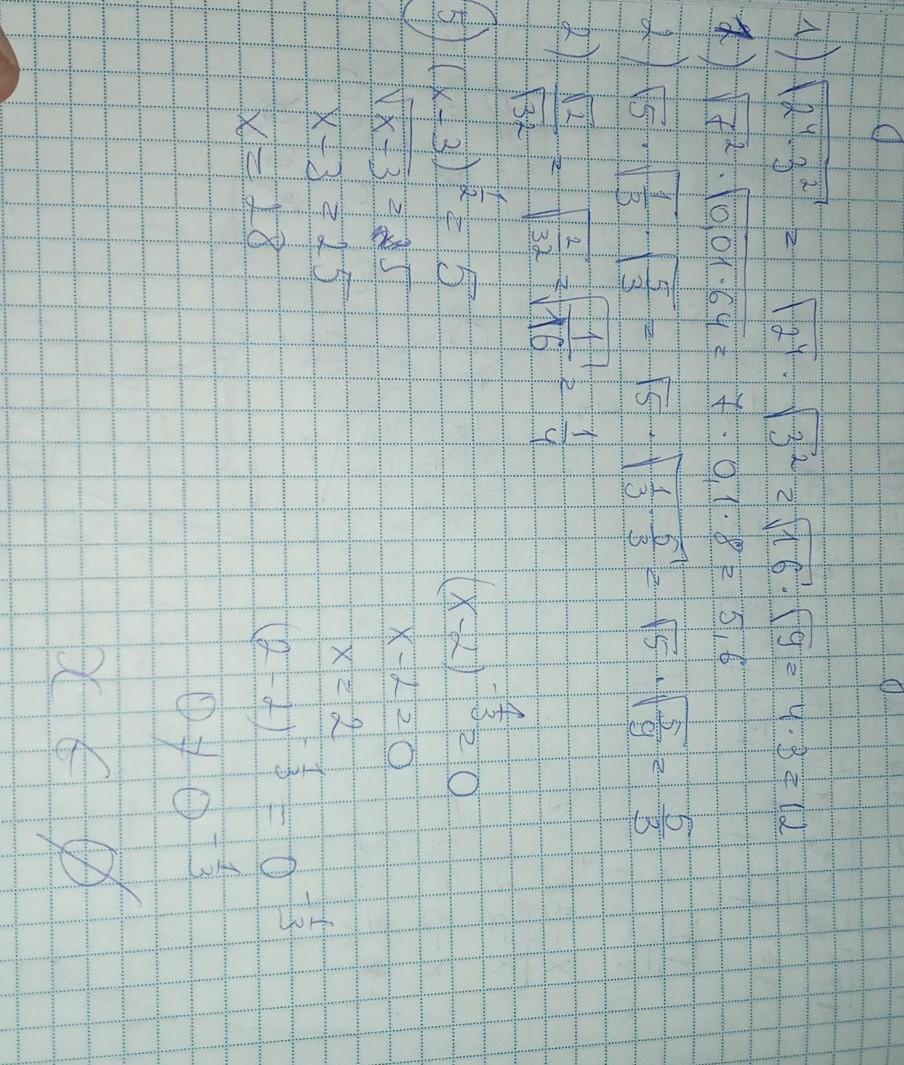 1) √(2⁴·3²) = √2⁴ · √3² = √16 · √9 = 4·3 = 12
2) √7² · √(0,01·64) = 7 · 0,1 · 8 = 5,6
2) √5 · √(1/3) · √(5/3) = √5 · √(1/3 · 5/3) = √5 · √(5/9) = 5/3
2) √2/√32 = √(2/32) = √(1/16) = 1/4
5) (x-3)^(1/2) = 5
√(x-3) = 5
x-3 = 25
x = 28
(x-2)^(-1/3) = 0
x-2 = 0
x = 2
(2-2)^(-1/3) = 0^(-1/3)
0 ≠ 0^(-1/3)
x ∈ ∅